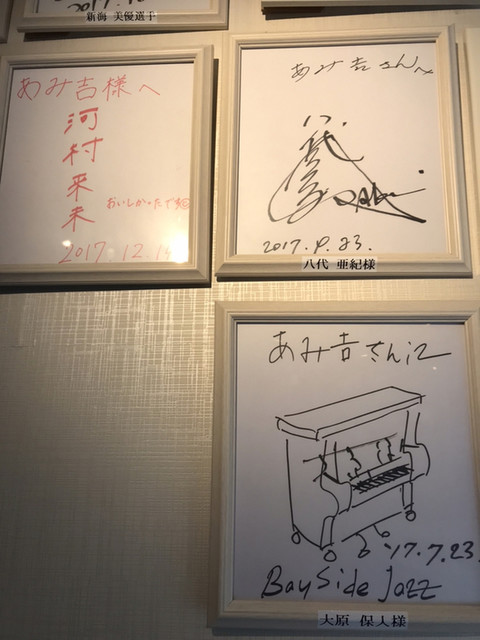 新海 美優選手
あみ吉様へ
河村来未
おいしかったです
2017.12.14
あみ吉さんへ
八代亜紀
2017.9.23.
八代 亜紀様
あみ吉さんに
'17.7.23.
BaySide Jazz
大原 保人様